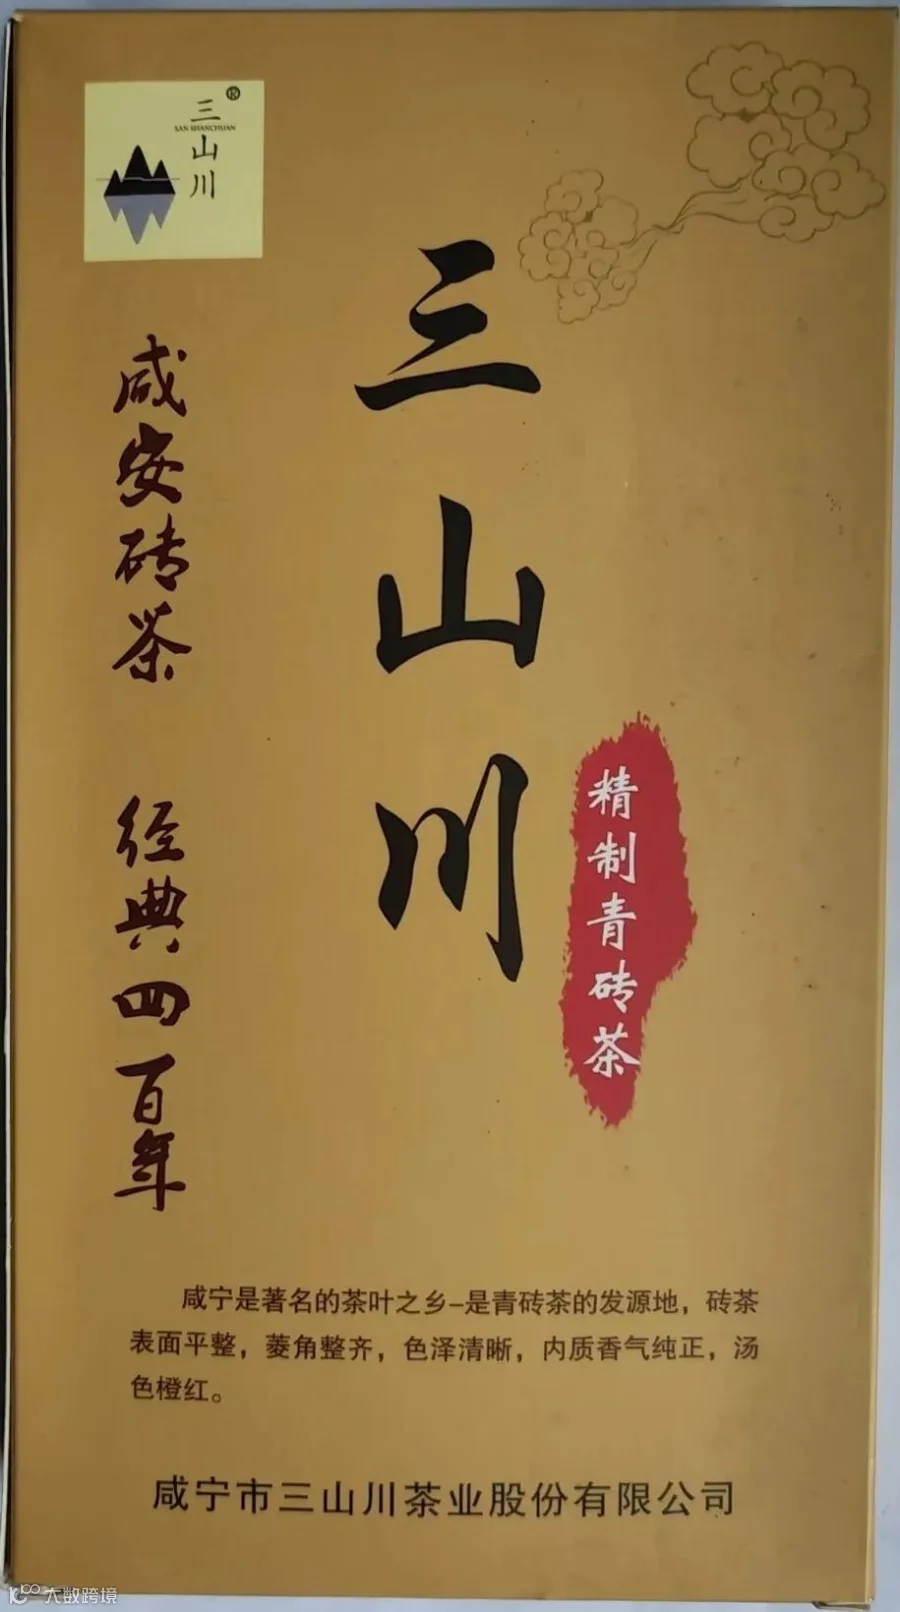 三山川
®
SAN SHANCHUAN
三山川
咸安砖茶 经典四百年
精制青砖茶
咸宁是著名的茶叶之乡-是青砖茶的发源地，砖茶
表面平整，菱角整齐，色泽清晰，内质香气纯正，汤
色橙红。
咸宁市三山川茶业股份有限公司
大数跨境